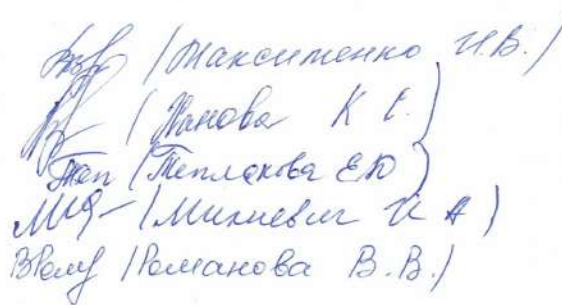 /Максименко И.В./
/Панова К Е./
Теп /Теплякова Е Ю/
/Михневич И А/
ВРому /Романова В.В./